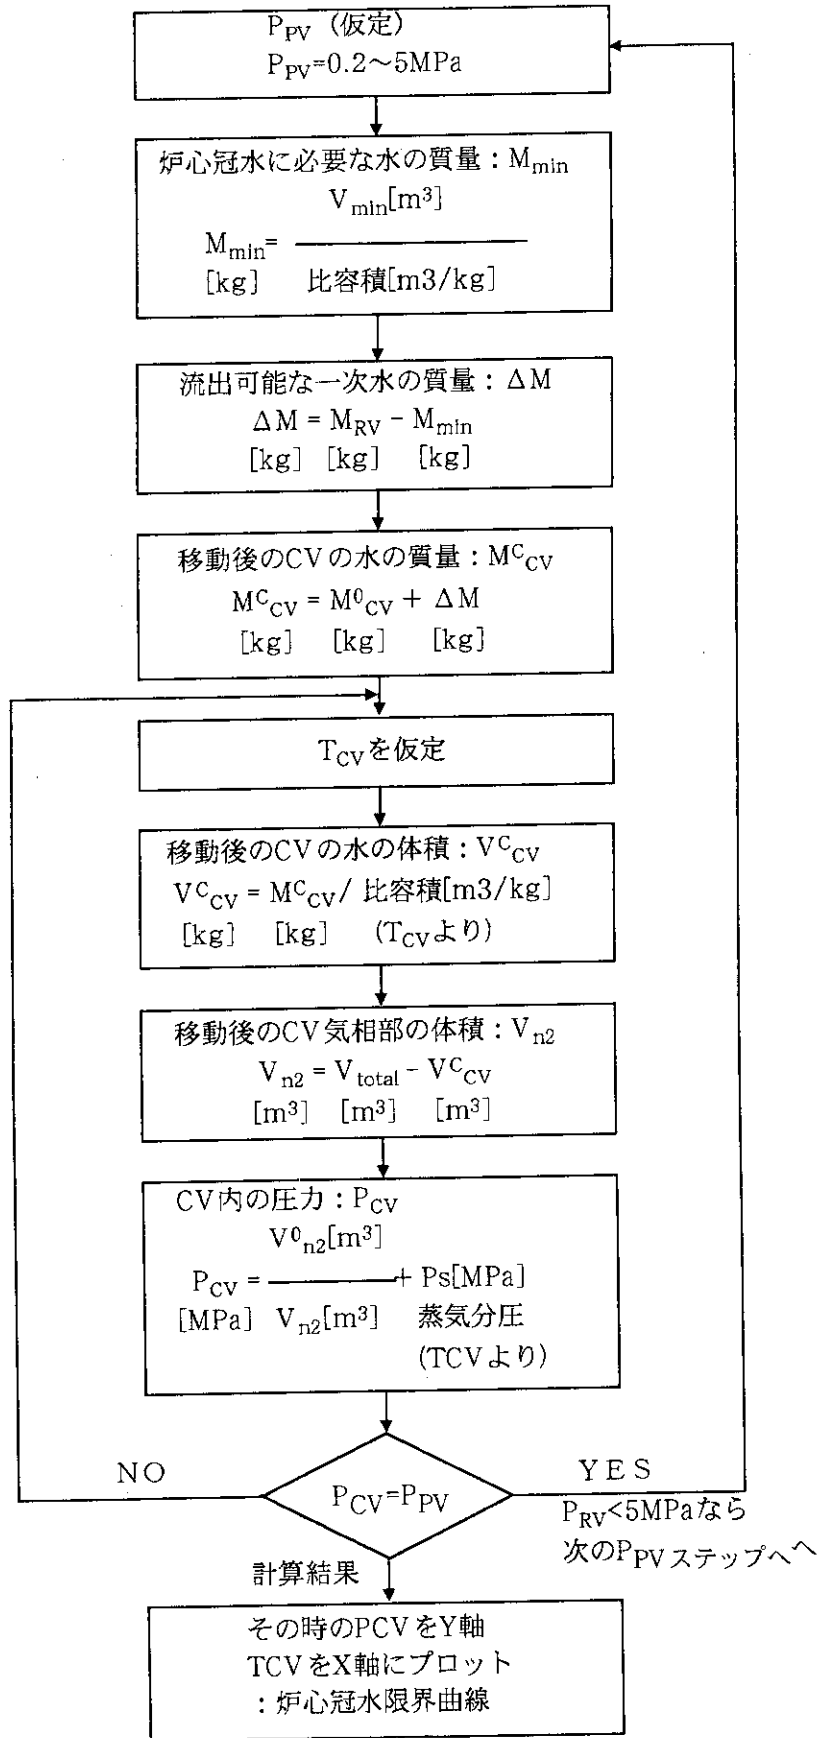 P_PV (仮定)
P_PV=0.2～5MPa
炉心冠水に必要な水の質量：M_min
V_min[m³]
M_min=
[kg] 比容積[m3/kg]
流出可能な一次水の質量：ΔM
ΔM = M_RV - M_min
[kg] [kg] [kg]
移動後のCVの水の質量：M^C_CV
M^C_CV = M^0_CV + ΔM
[kg] [kg] [kg]
T_CVを仮定
移動後のCVの水の体積：V^C_CV
V^C_CV = M^C_CV/ 比容積[m3/kg]
[kg] [kg] (T_CVより)
移動後のCV気相部の体積：V_n2
V_n2 = V_total - V^C_CV
[m³] [m³] [m³]
CV内の圧力：P_CV
V^0_n2[m³]
P_CV = + Ps[MPa]
[MPa] V_n2[m³] 蒸気分圧
(TCVより)
NO
P_CV=P_PV
YES
P_RV<5MPaなら
次のP_PVステップへへ
計算結果
その時のPCVをY軸
TCVをX軸にプロット
：炉心冠水限界曲線